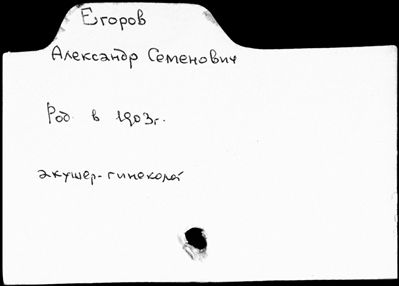 Егоров
Александр Семенович
Род. в 1903г.
акушер-гинеколог